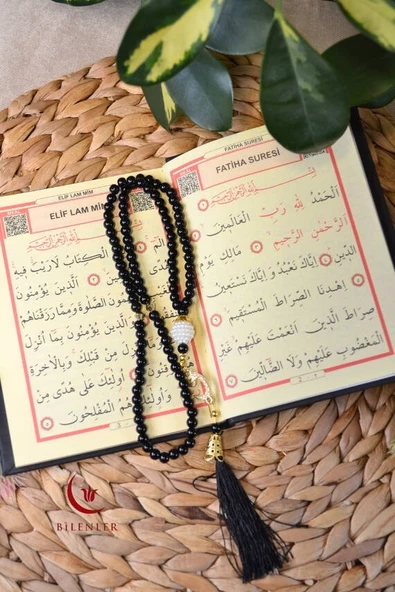 FATİHA SURESİ
FATİHA SURESİ
اَلْحَمْدُ لِلّٰهِ رَبِّ الْعَالَمِينَ
اَلرَّحْمٰنِ الرَّحِيمِ مَالِكِ يَوْمِ
الدِّينِ اِيَّاكَ نَعْبُدُ وَاِيَّاكَ نَسْتَعِينُ
اِهْدِنَا الصِّرَاطَ الْمُسْتَقِيمَ
صِرَاطَ الَّذِينَ اَنْعَمْتَ عَلَيْهِمْ غَيْرِ
الْمَغْضُوبِ عَلَيْهِمْ وَلَا الضَّالِّينَ
ELİF LAM MİM
ELİF LAM MİM
الْكِتَابُ لَا رَيْبَ فِيهِ
اَلَّذِينَ يُؤْمِنُونَ
الصَّلٰوةَ وَمِمَّا رَزَقْنَاهُمْ
الَّذِينَ يُؤْمِنُونَ بِمَا اُنْزِلَ
مِنْ قَبْلِكَ وَبِالْاٰخِرَةِ
اُولٰئِكَ عَلٰى هُدًى مِنْ
وَاُولٰئِكَ هُمُ الْمُفْلِحُونَ
BİLENLER